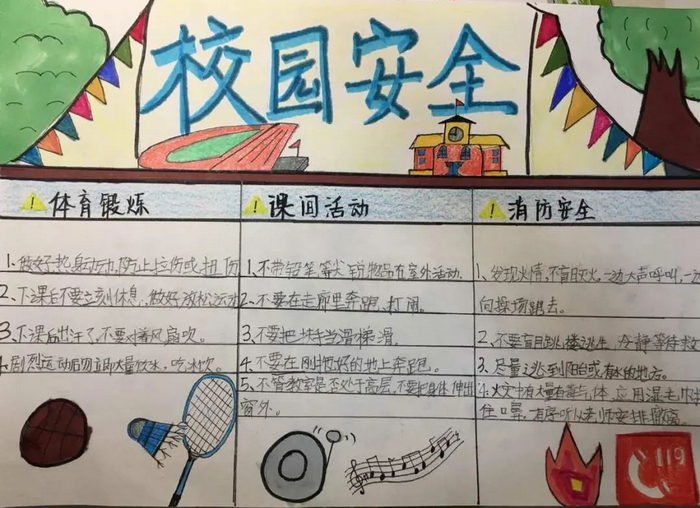 校园安全
体育锻炼
1、做好热身防止拉伤或扭伤
2、下课后不要立刻休息，做好放松运动
3、下课后出汗了，不要对着风扇吹。
4、剧烈运动后勿立即大量饮水，吃冰饮。
课间活动
1、不带铅笔等尖锐物品在室外活动.
2、不要在走廊里奔跑、打闹。
3、不要把扶手当滑梯滑.
4、不要在刚拖好的地上奔跑。
5、不管教室是否处于高层，不要把身体伸出
窗外。
消防安全
1、发现火情，不盲目救火。一边大声呼叫，一边
向操场跑去。
2、不要盲目跳楼逃生，冷静等待救
3、尽量逃到阳台或有水的地方。
4、火灾中有大量有毒气体，应用湿毛巾捂
住口鼻，有序听从老师安排撤离。
119